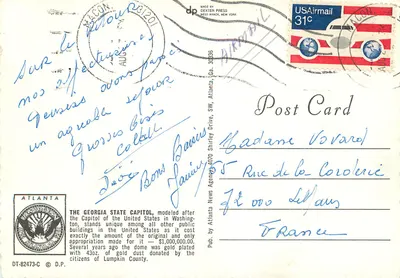 MACON, 
AUG
dp
DEXTER PRESS
WEST NYACK, NEW YORK
USAirmail
31c
PAR AVION
Sur le retour
nos affectueuses
pensées avons passé
un agréable séjour
Grosses bises
Bons Baisers
Post Card
Madame
5 Rue de la
72000 Le Mans
France
ATLANTA
THE GEORGIA STATE CAPITOL, modeled after
the Capitol of the United States in Washing-
ton, stands unique among all other public
buildings in the United States as it cost
exactly the amount of the original and only
appropriation made for it — $1,000,000.00.
Several years ago the dome was gold plated
with 43oz. of gold dust donated by the
citizens of Lumpkin County.
DT-82473-C © D.P.
Pub. by Atlanta News Agency, Shirley Drive, SW, Atlanta, GA. 30336